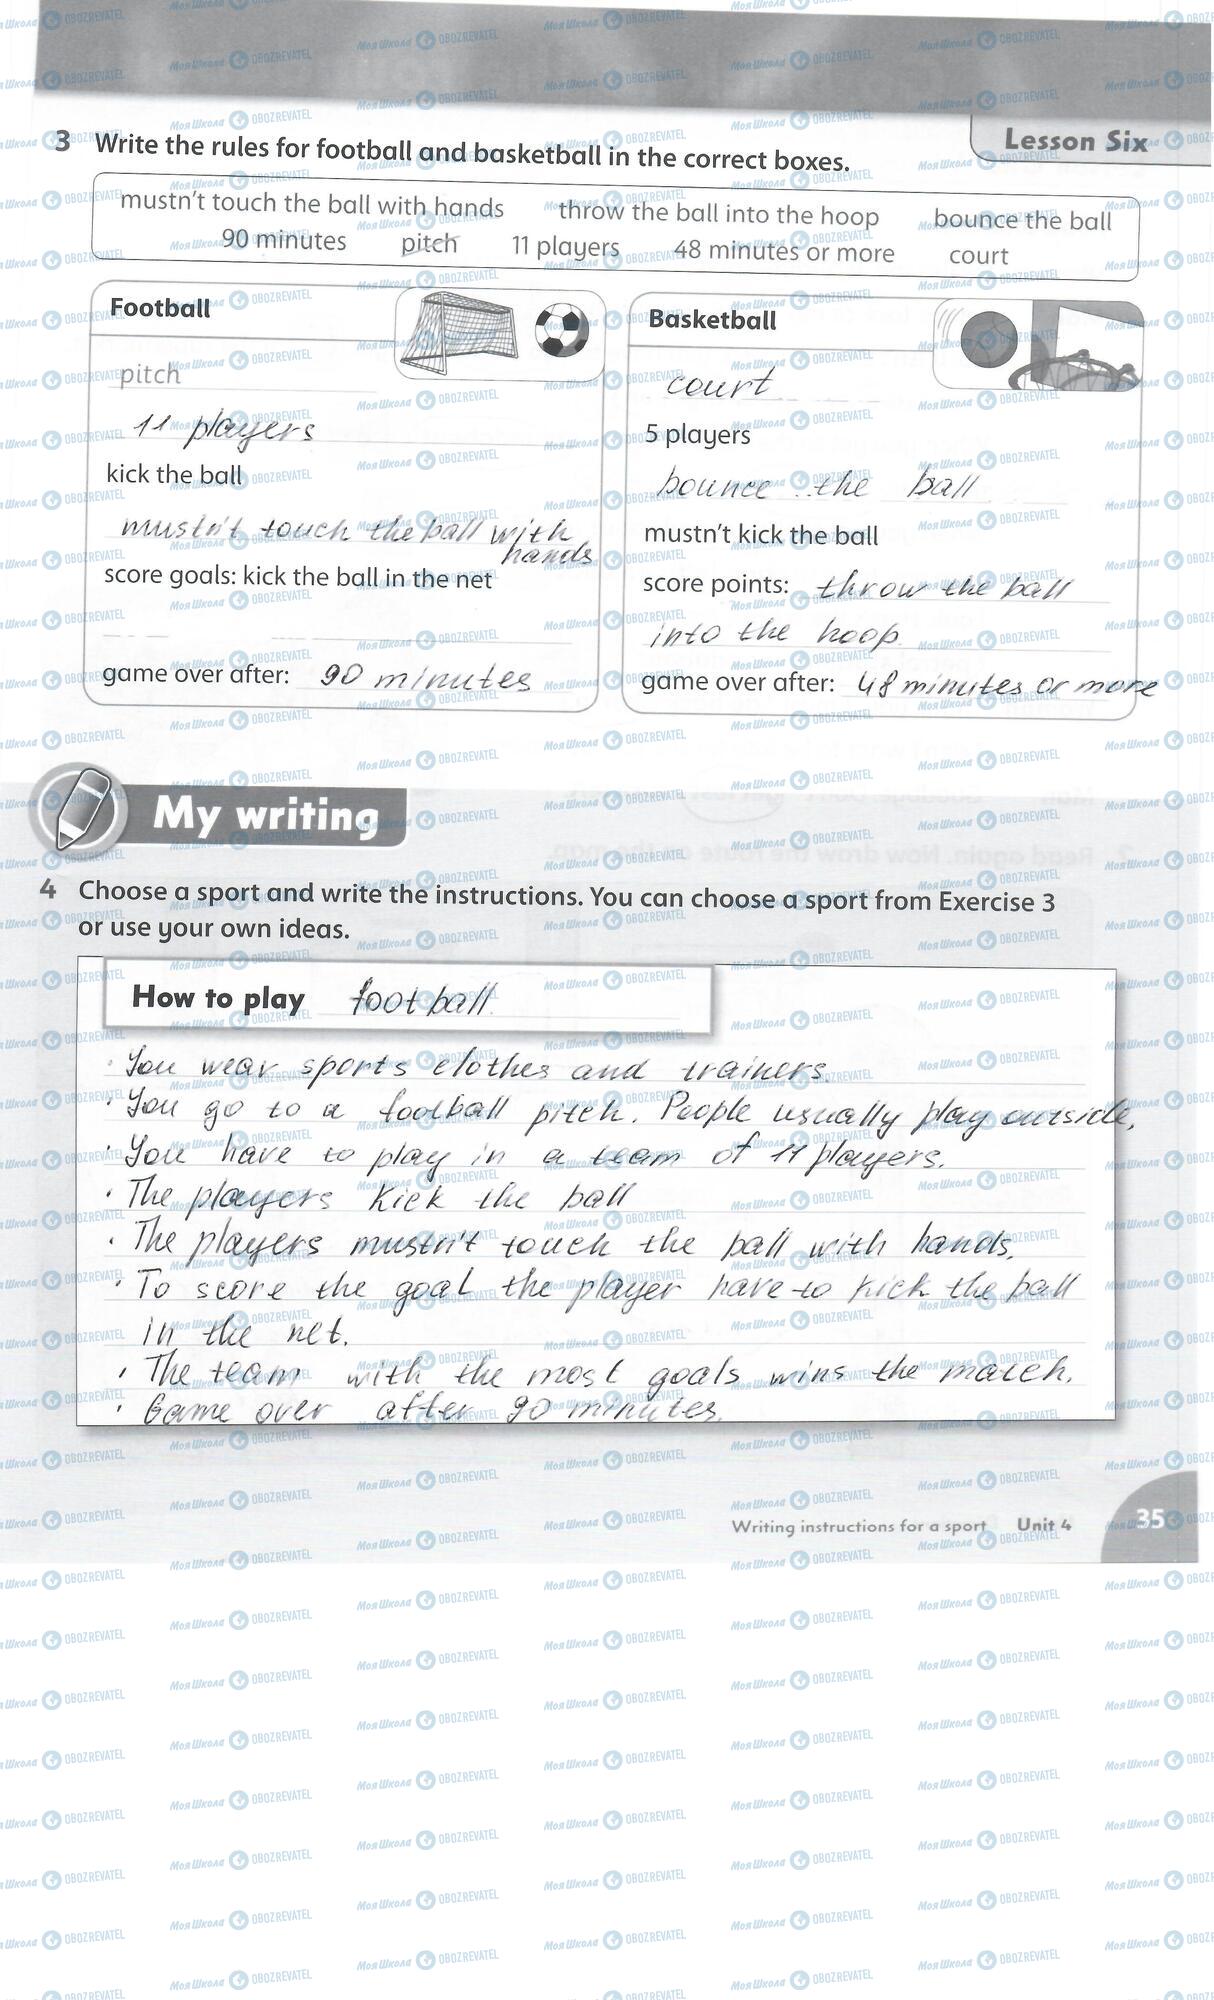 Lesson Six
3 Write the rules for football and basketball in the correct boxes.
mustn't touch the ball with hands throw the ball into the hoop bounce the ball
90 minutes pitch 11 players 48 minutes or more court
Football
pitch
11 players
kick the ball
mustn't touch the ball with
hands
score goals: kick the ball in the net
game over after: 90 minutes
Basketball
court
5 players
bounce the ball
mustn't kick the ball
score points: throw the ball
into the hoop.
game over after: 48 minutes or more
My writing
4 Choose a sport and write the instructions. You can choose a sport from Exercise 3
or use your own ideas.
How to play football.
· You wear sports clothes and trainers.
· You go to a football pitch. People usually play outside.
· You have to play in a team of 11 players.
· The players kick the ball
· The players mustn't touch the ball with hands.
· To score the goal the player have to kick the ball
in the net.
· The team with the most goals wins the match.
· Game over after 90 minutes.
Writing instructions for a sport Unit 4 35
МояШкола OBOZREVATEL